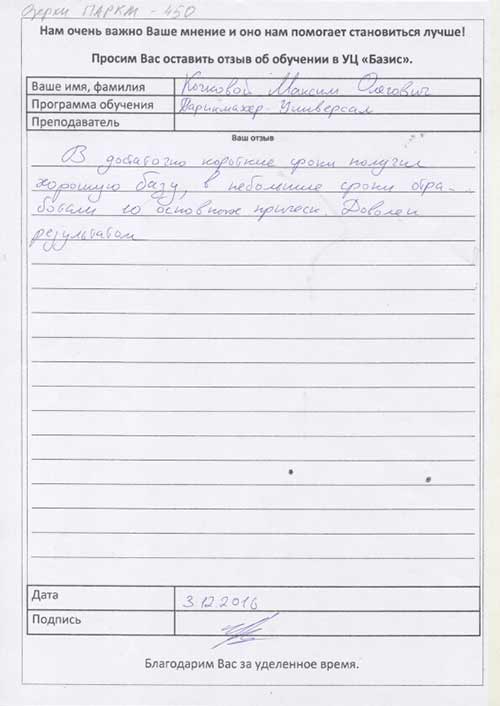 Озерки ПАРКМ - 450
Нам очень важно Ваше мнение и оно нам помогает становиться лучше!
Просим Вас оставить отзыв об обучении в УЦ «Базис».
Ваше имя, фамилия Кочковой Максим Олегович
Программа обучения Парикмахер-Универсал
Преподаватель
Ваш отзыв
В достаточно короткие сроки получил
хорошую базу, в небольшие сроки отра-
ботали 10 основных причесок. Доволен
результатом
Дата 3.12.2016
Подпись
Благодарим Вас за уделенное время.